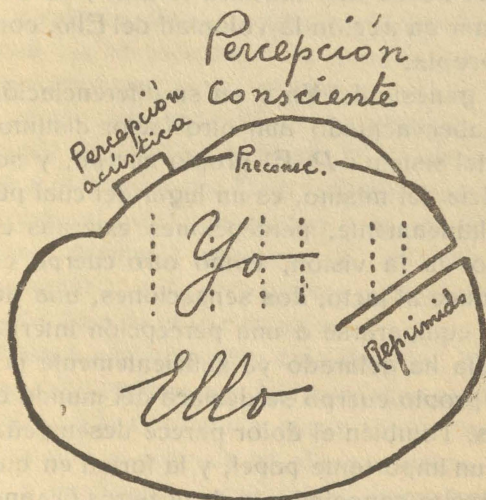 Percepción
consciente
Percepción
acústica
Preconsc.
Yo
Reprimido
Ello